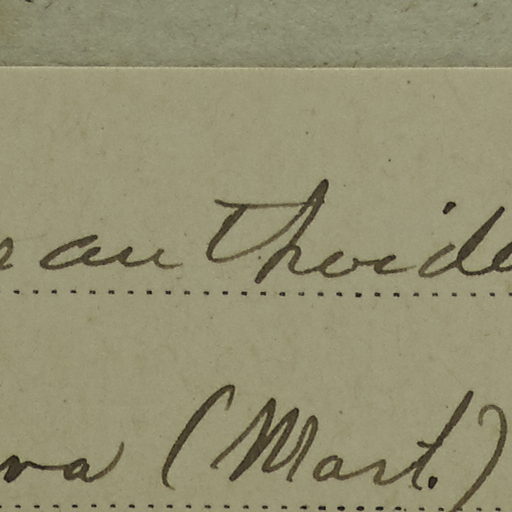 ranthoide
va (Mart.)